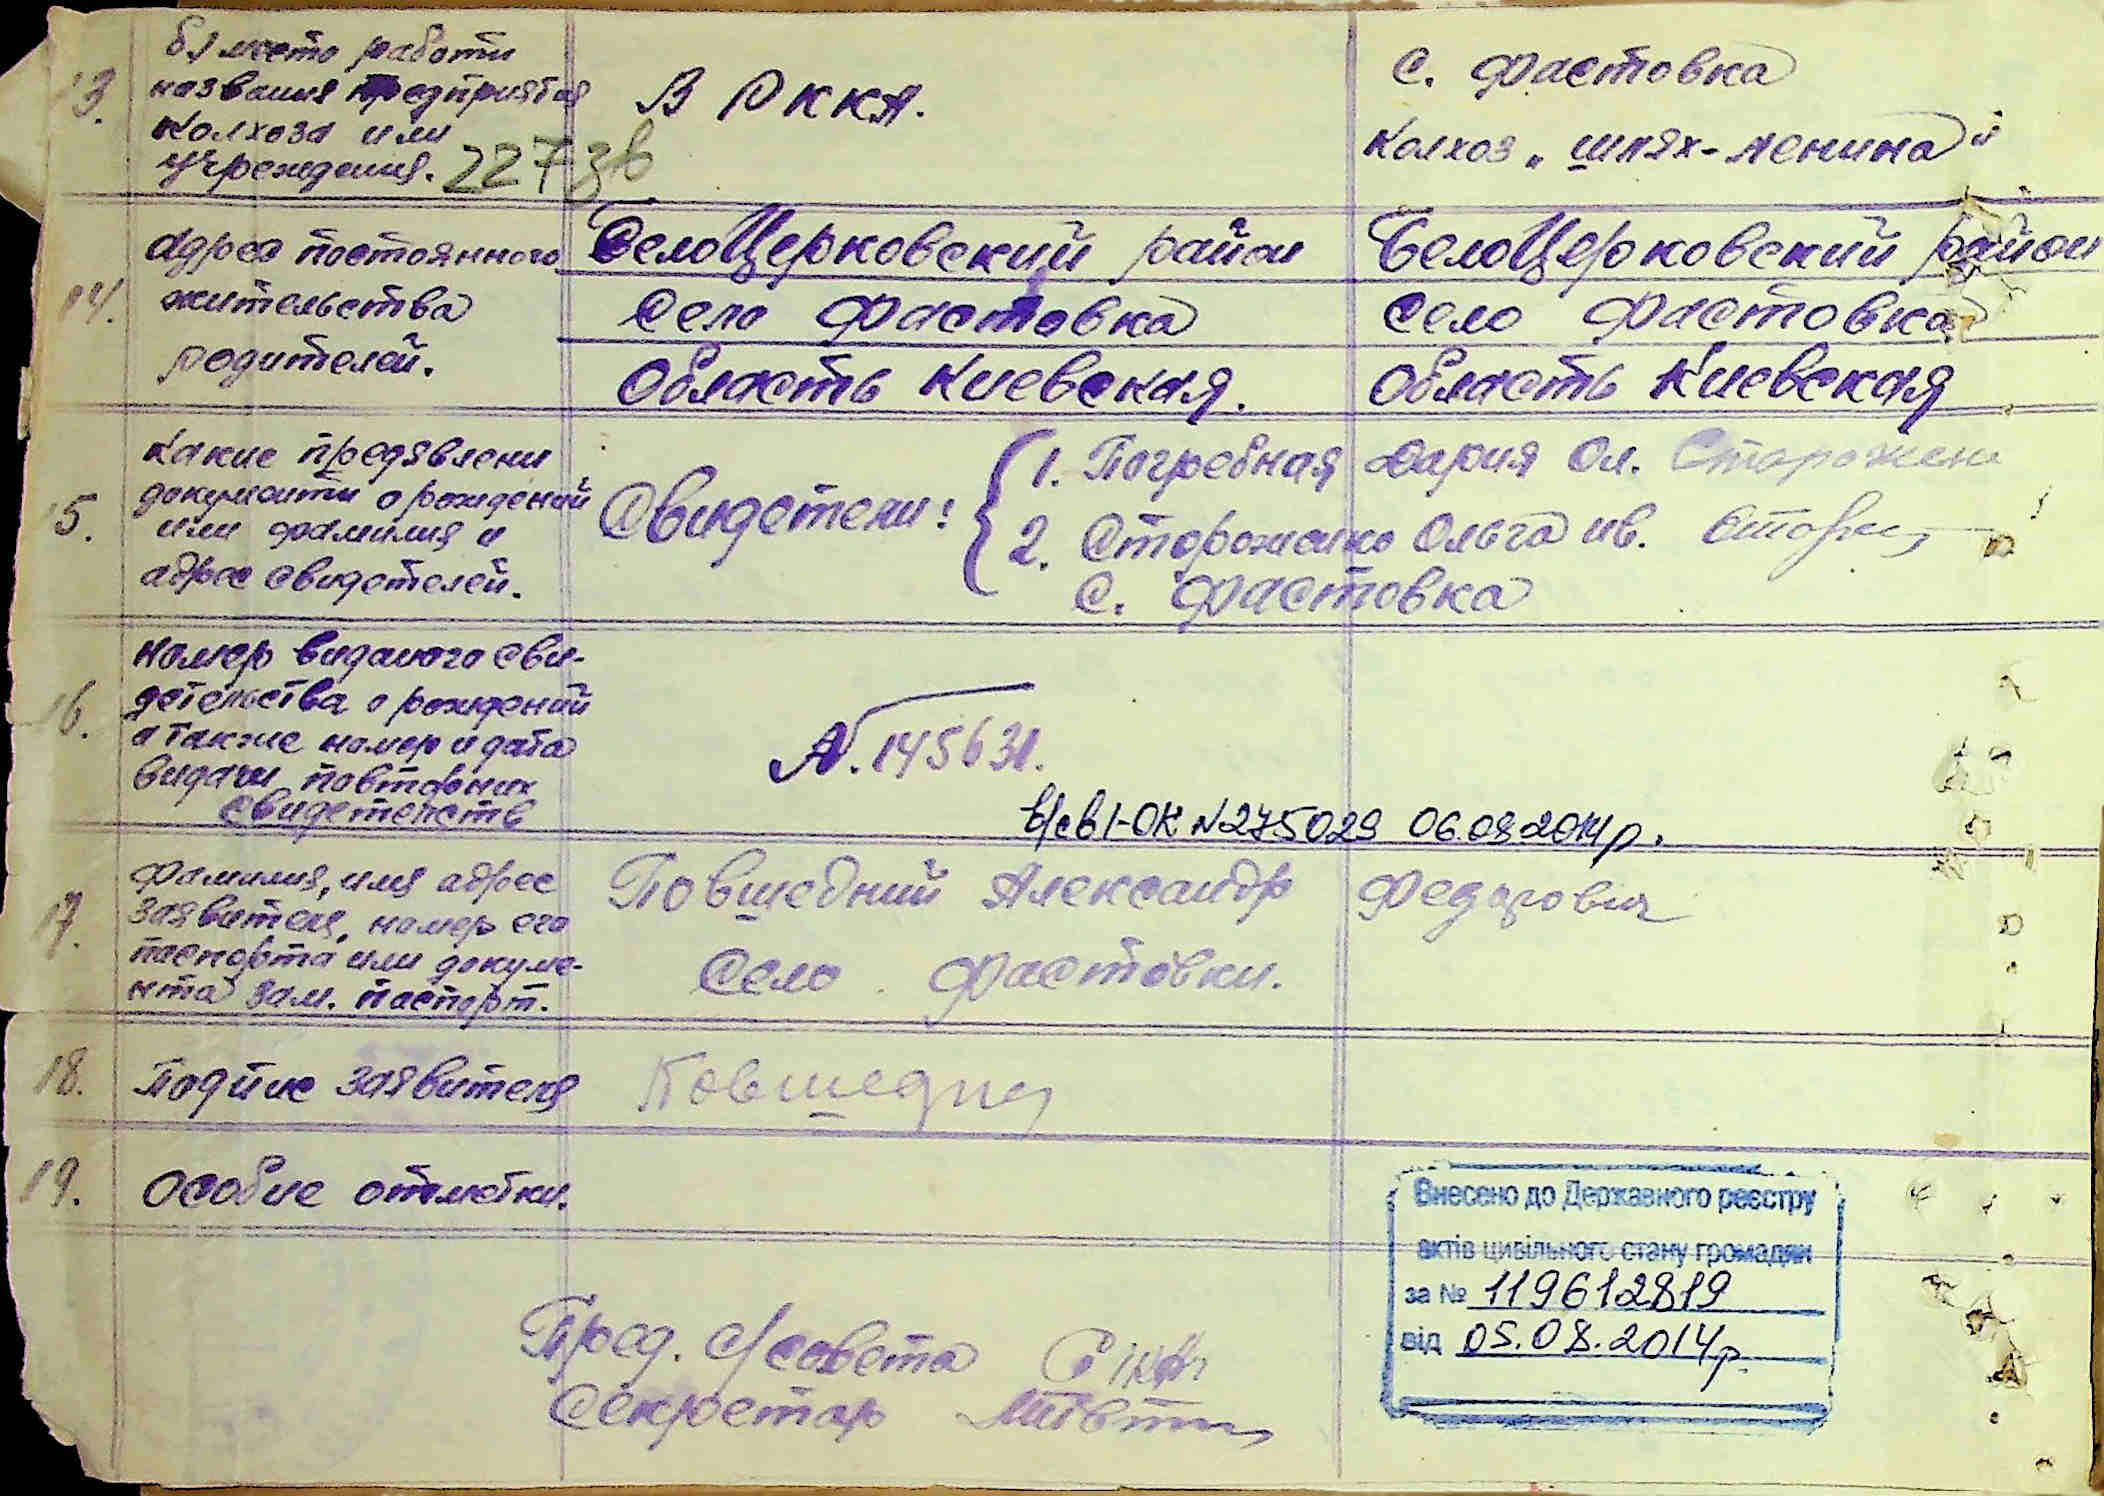 13. б) место работи
названия предприятия
колхоза или
учреждения. 227 зв
В РККА.
с. Фастовка
колхоз „шлях-Ленина"
14. адреса постоянного
жительства
родителей.
БелоЦерковский район
село Фастовка
Область Киевская.
БелоЦерковский район
село Фастовка
Область Киевская
15. Какие предявлени
документи о рождений
или фамилия и
адрес свидетелей.
Свидетели:
1. Погребная Дария Ол. Сторожен
2. Стороженко Ольга ив.
с. Фастовка
16. номер виданого сви-
детельства о рождений
а также номер и дата
видачи повторних
свидетельств
N. 145631.
в/св I-ОК N275029 06.08.2014р.
17. Фамилия, имя адрес
заявителя, номер его
паспорта или докуме-
нта зам. паспорт.
Повшедний Александр Федорович
село Фастовки.
18. Подпис заявителя
Повшедний
19. особие отметки.
Пред. с/совета
Секретар
Внесено до Державного реєстру
актів цивільного стану громадян
за № 119612819
від 05.08.2014р.